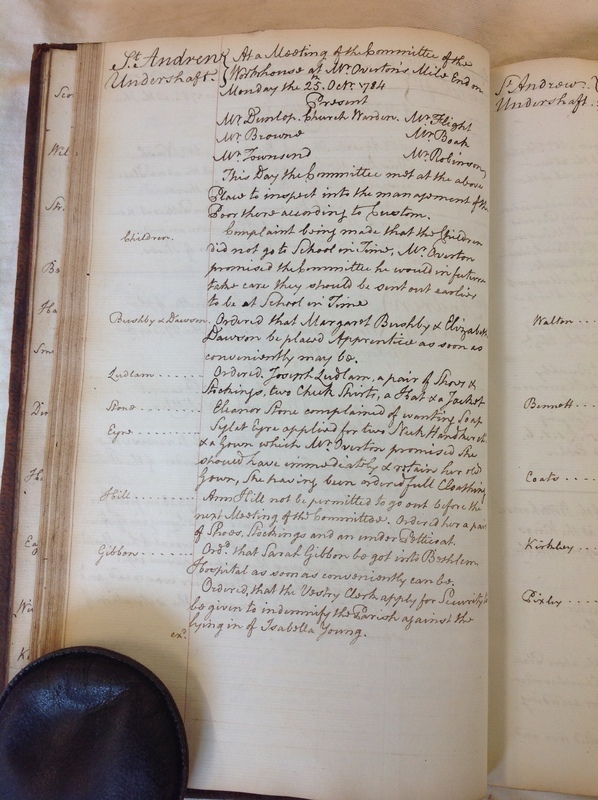 St. Andrew
Undershaft.
At a Meeting of the Committee of the
Workhouse at Mr. Overton's Mile End on
Monday the 25th Octr. 1784
Present
Mr. Dunlop. Church Warden. Mr. Flight
Mr. Browne Mr. Boak
Mr. Townsend Mr. Robinson
This Day the Committee met at the above
Place to inspect into the management of the
Poor there according to Custom.
Children. Complaint being made that the Children
did not go to School in Time; Mr. Overton
promised the Committee he would in future
take care they should be sent out earlier
to be at School in Time
Bushby & Dawson. Ordered that Margaret Bushby & Elizabeth
Dawson be placed Apprentice as soon as
conveniently may be.
Ludlam...... Ordered, Joseph Ludlam, a pair of Shoes &
Stockings, two Check Shirts, a Hat & a Jacket
Stone....... Eleanor Stone complained of wanting Soap
Eyre........ Syglet Eyre applied for two Neck Handkerch
& a Gown which Mr. Overton promised she
should have immediately & retain her old
Gown, She having been ordered full Cloathing
Hill........ Ann Hill not be permitted to go out before the
next Meeting of the Committee. Ordered her a pair
of Shoes, Stockings and an under Petticoat
Gibbon...... Ordd. that Sarah Gibbon be got into Bethlem
Hospital as soon as conveniently can be.
Ordered, that the Vestry Clerk apply for Security to
be given to indemnify the Parish against the
lying in of Isabella Young.
exd.
St. Andrew
Undershaft.
Walton ....
Bennett ....
Coats ....
Kirkley ....
Pixley ....